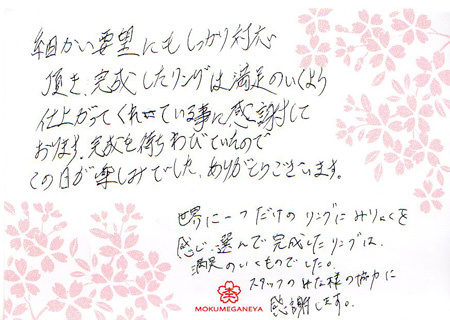 細かい要望にもしっかり対応
頂き、完成したリングは満足のいくよう
仕上がってくれている事に感謝して
おります。完成を待ちわびていたので
この日が楽しみでした。ありがとうございます。
世界に一つだけのリングにみりょくを
感じ、選んで完成したリングは、
満足のいくものでした。
スタッフのみな様の協力に
感謝します。
MOKUMEGANEYA